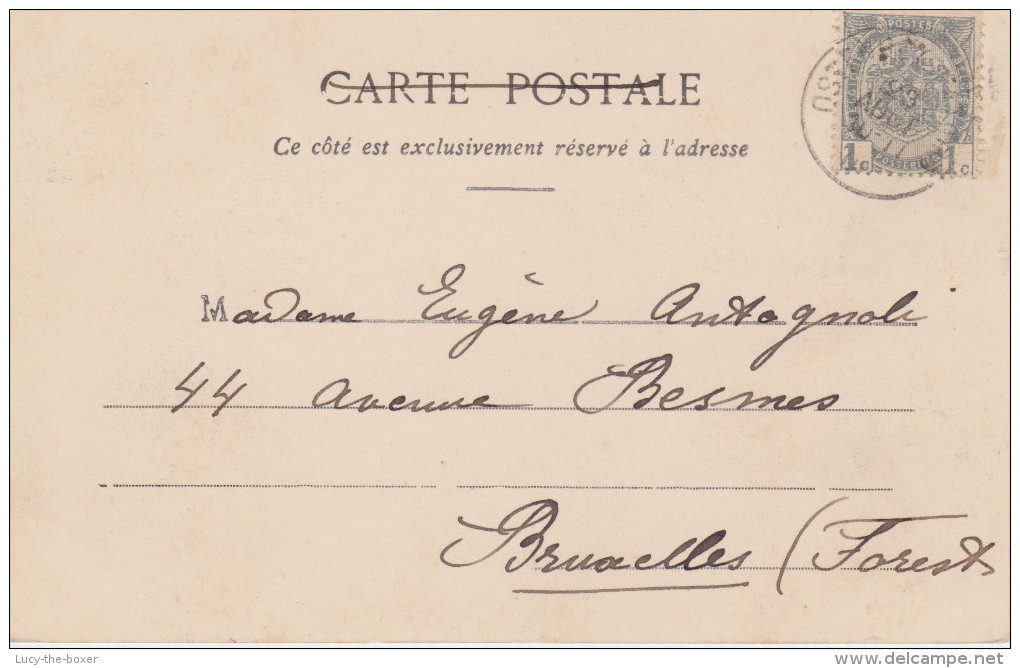 CARTE POSTALE
Ce côté est exclusivement réservé à l'adresse
POSTES
1c POSTERIJEN 1c
Madame Eugène Antagnoli
44 avenue Besmes
Bruxelles (Forest
Lucy-the-boxer
delcampe.net